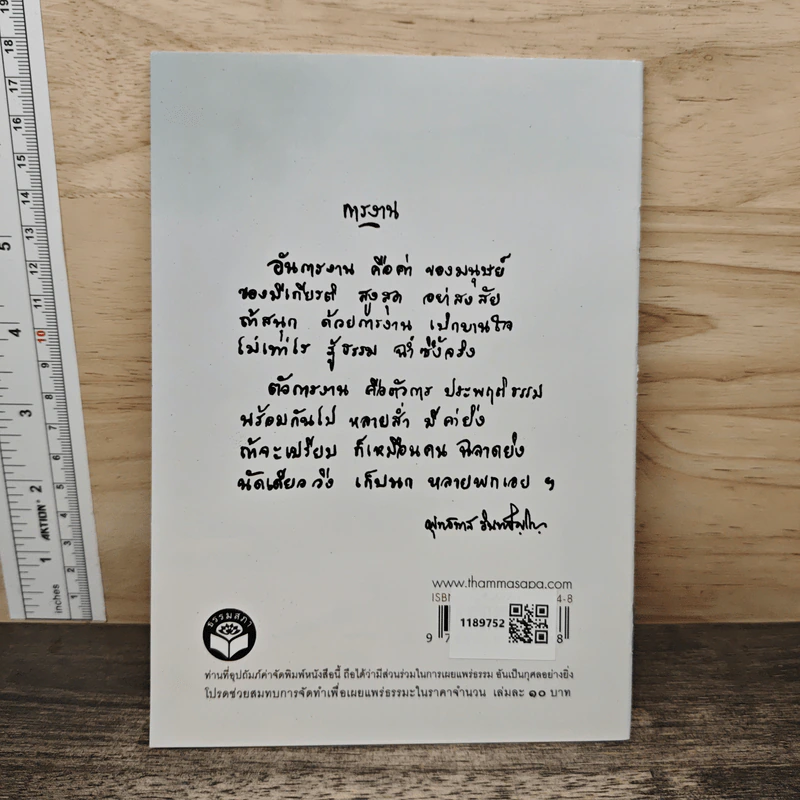 การงาน
อันการงาน คือค่า ของมนุษย์
ของมีเกียรติ สูงสุด อย่าสงสัย
ถ้าสนุก ด้วยการงาน เบิกบานใจ
ไม่เท่าไร รู้ธรรม ฉ่ำซึ้งจริง
ตัวการงาน คือตัวการ ประพฤติธรรม
พร้อมกันไป หลายส่ำ มีค่ายิ่ง
ถ้าจะเปรียบ ก็เหมือนคน ฉลาดยิง
นัดเดียววิ่ง เก็บนก หลายพกเอย ฯ
พุทธทาส อินทปัญโญ
www.thammasapa.com
ISBN 4-8
9 7 8
1189752
ธรรมสภา
ท่านที่อุปถัมภ์ค่าจัดพิมพ์หนังสือนี้ ถือได้ว่ามีส่วนร่วมในการเผยแพร่ธรรม อันเป็นกุศลอย่างยิ่ง
โปรดช่วยสมทบการจัดทำเพื่อเผยแพร่ธรรมะในราคาจำนวน เล่มละ ๑๐ บาท
19
18
17
16
15
14
13
12
11
10
9
8
7
6
5
4
3
2
1
5
4
3
2
1
AKTION
inches
cm